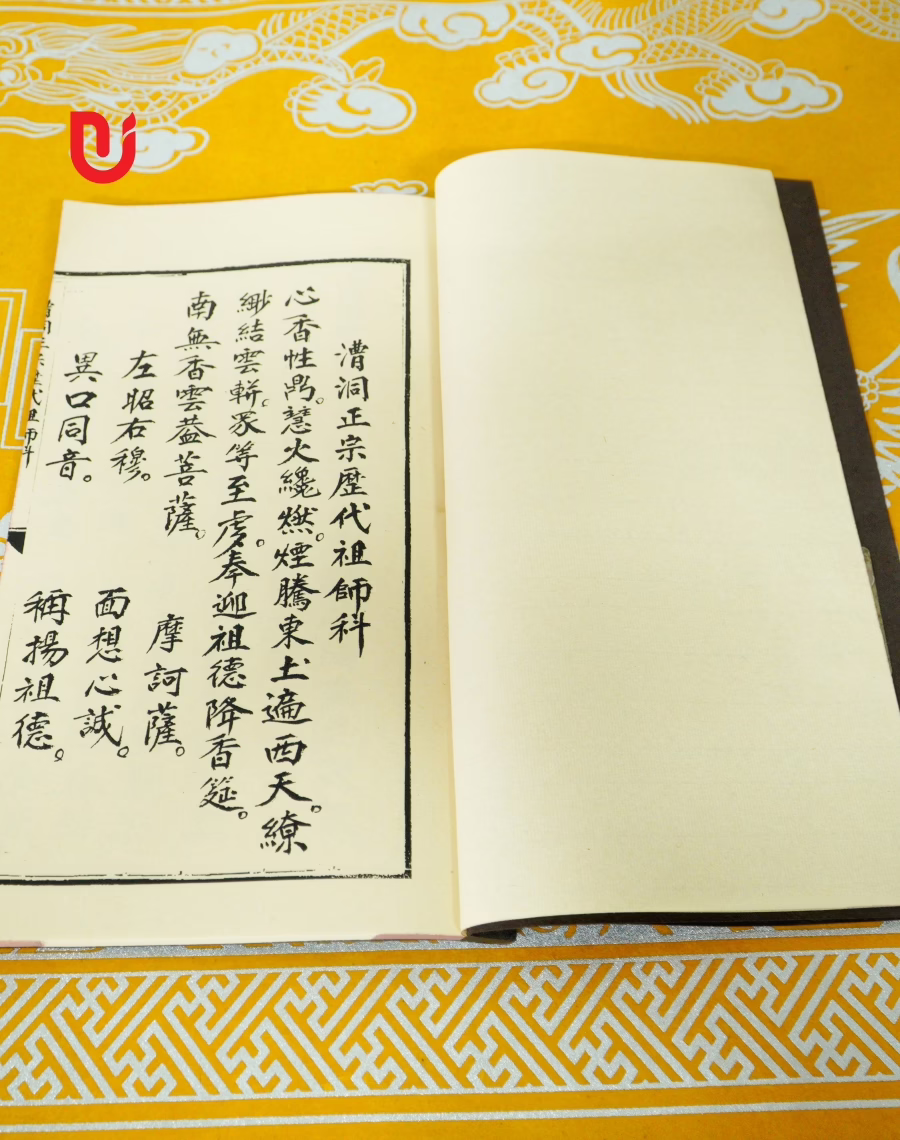 漕洞正宗歷代祖師科
心香性鼎。慧火纔燃。煙騰東土遍西天。繚
緲結雲軿。眾等至虔。奉迎祖德降香筵。
南無香雲葢菩薩。 摩訶薩。
左昭右穆。 面想心誠。
異口同音。 稱揚祖德。